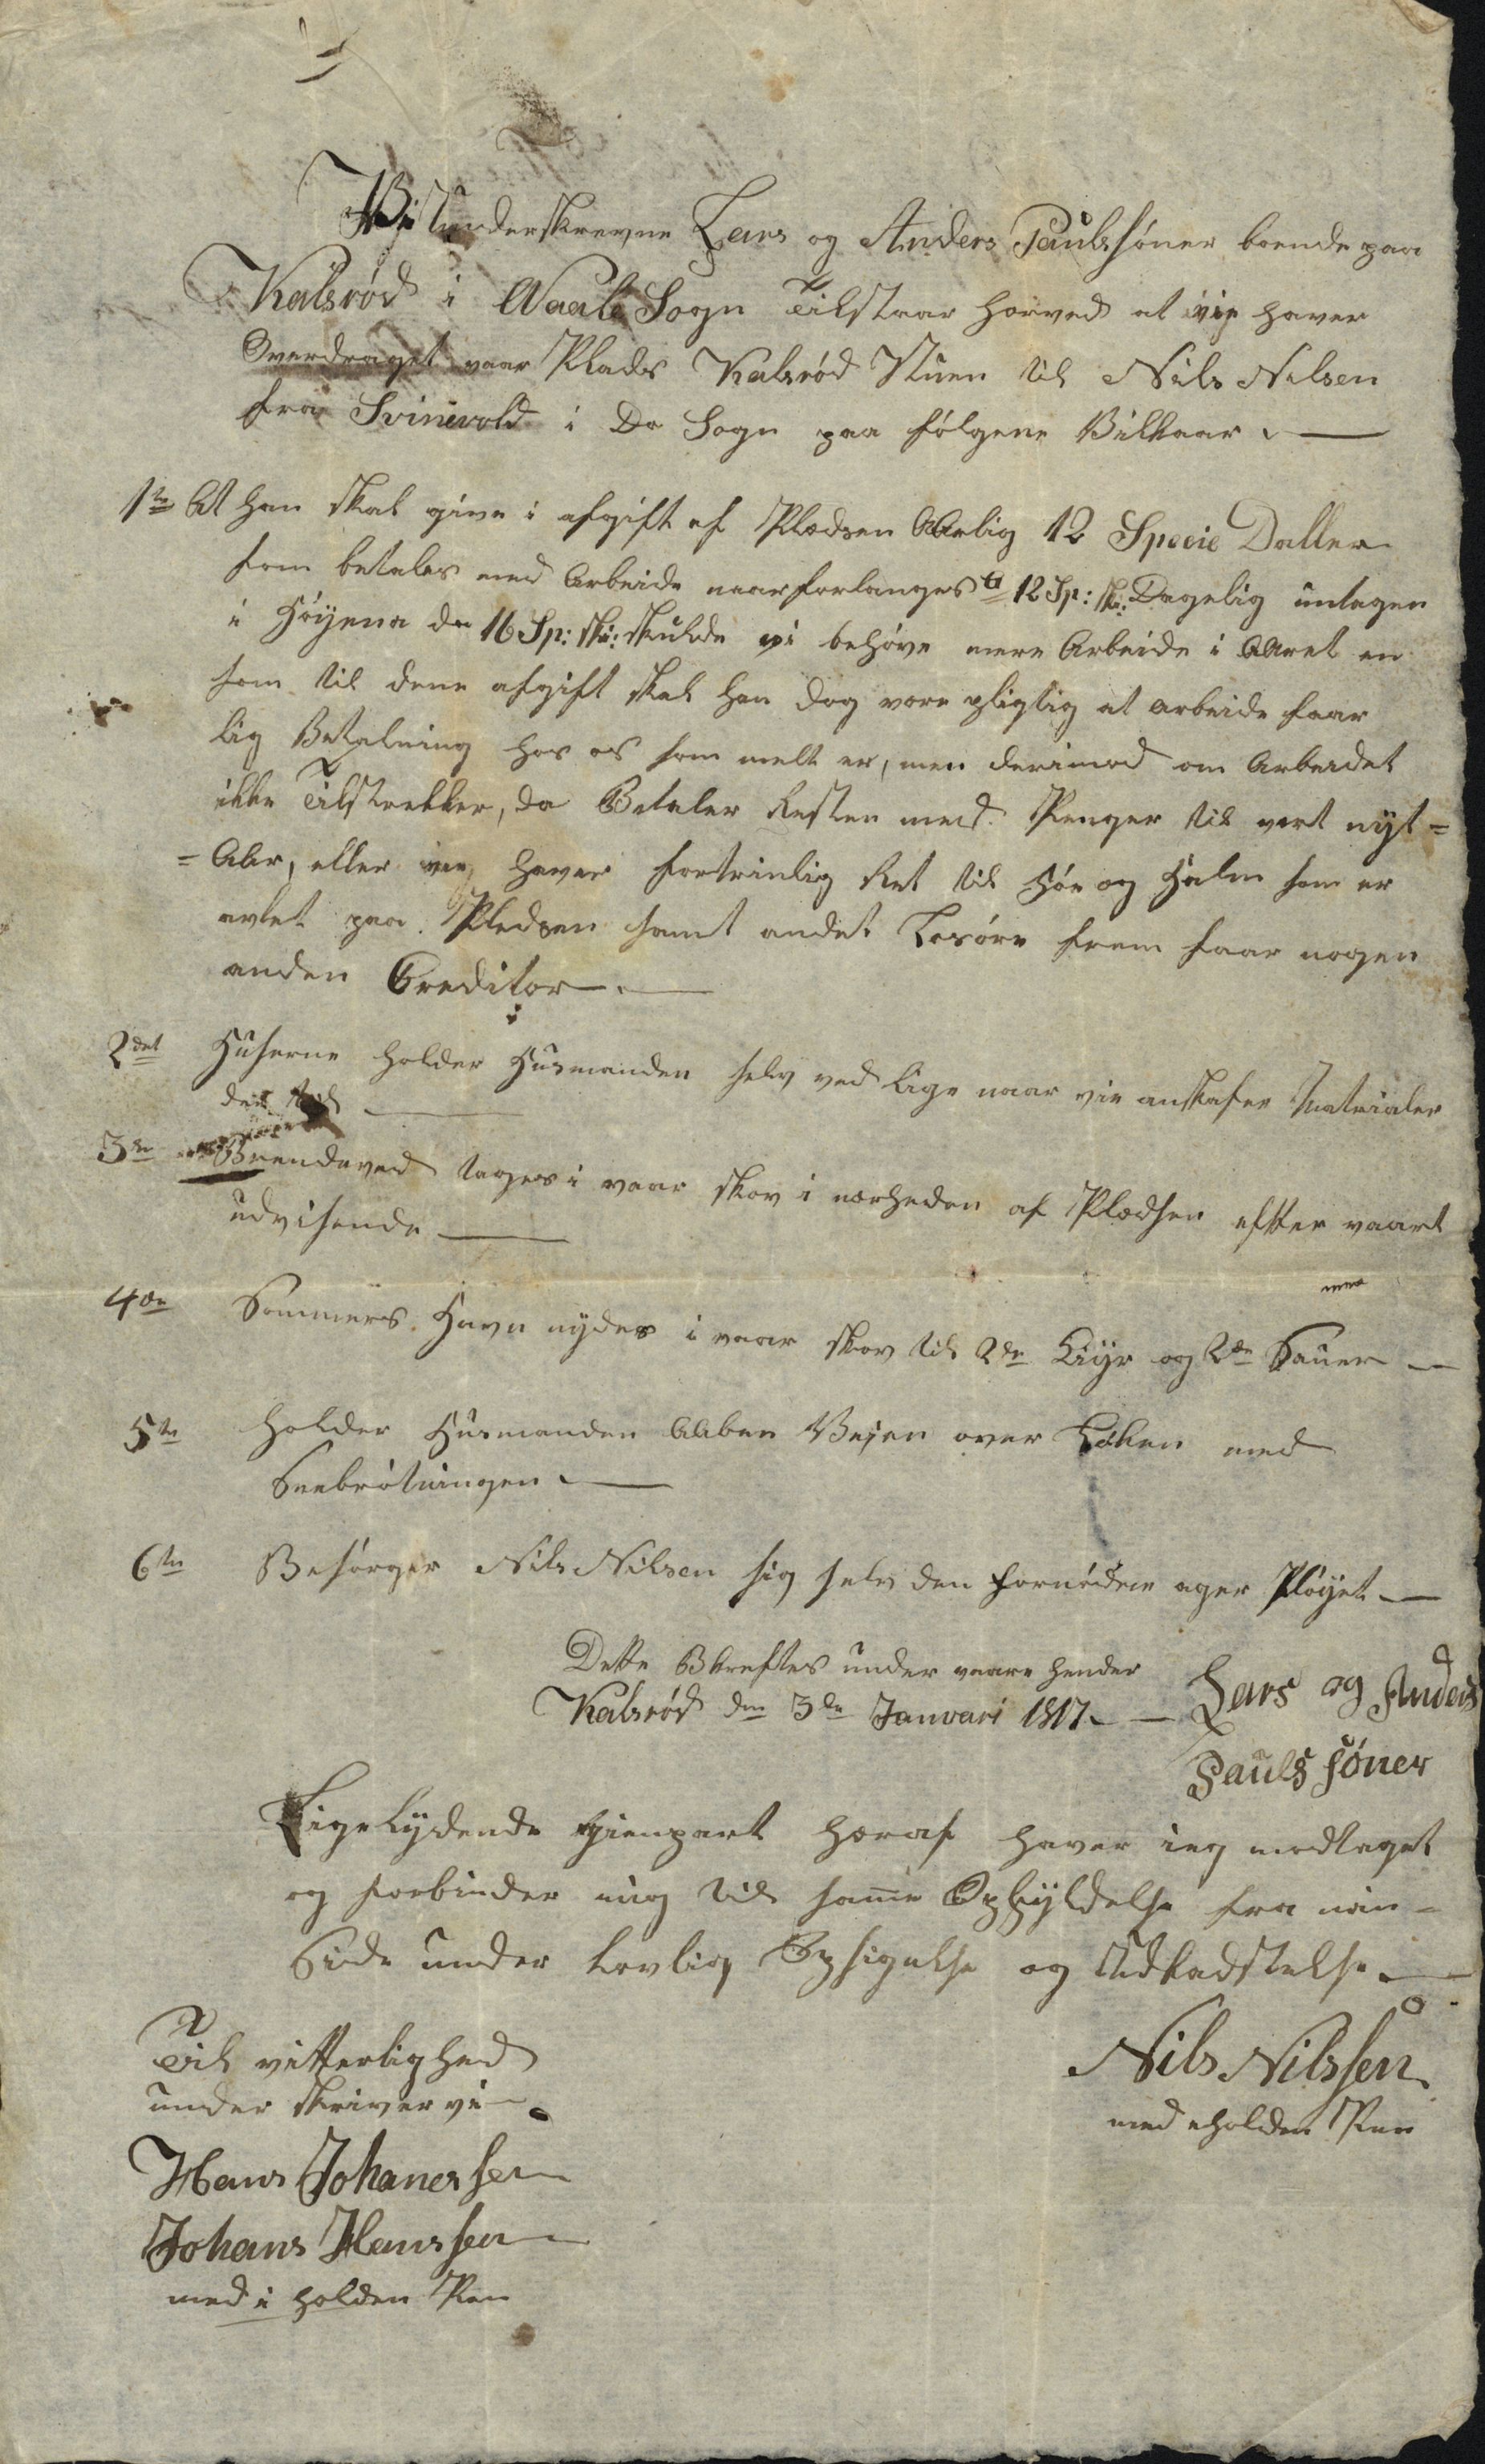 Vi Underskrevne Lars og Anders Paulssöner boende paa
Kalsröd i Waale Sogn Tilstaar herved at vie haver
Overdraget vaar Plads Kalsröd Stuen til Nils Nilsen
fra Svinevold i Do Sogn paa fölgene Vilkaar. —
1te At han skal give i afgift af Pladsen Aarlig 12 Specie Daller
som betales med Arbeide naar forlanges a 12 Sp: sk: Dagelig untagen
i Höyena da 16 Sp: sk: skulde vi behöve mere Arbeide i Aaret en
som til dene afgift skal han dog være pligtig at arbeide faar
lig Betalning hos os som melt er, men derimod om Arbeidet
ikke Tilstrekker, da Betaler Resten med Penger til vert nyt-
=Aar, eller vie haver fortrinlig Ret til Höe og Halm som er
avlet paa Pladsen samt andet Losöre frem faar nogen
anden Creditor —
2det Huserne holder Husmanden selv ved Lige naar vie anskafer Matrialer
der til —
3de Brendeved tages i vaar skov i nærheden af Pladsen efter vaart
udvisende —
4de Sommers Havn nydes i vaar skov til 2de Kiyr og 2de Sauer —
5te holder Husmanden Aaben Vejen over Løken med
Sneebrötningen —
6te Besörger Nils Nilsen sig selv den fornödene ager Plöyet —
Dette Bkreftes under vaare hender
Kalsröd den 3de Januari 1817. — Lars og Anders
Pauls söner
Lige Lydende Gienpart heraf haver ieg modtaget
og forbinder mig til same Opfyldelse fra min
Side under Lovlig Opsigelse og Udkastelse —
Nils Nilssen
med eholden Pen
Til vitterlighed
under skriver vi
Hans Johanessen
Johans Hanssen
med i holden Pen